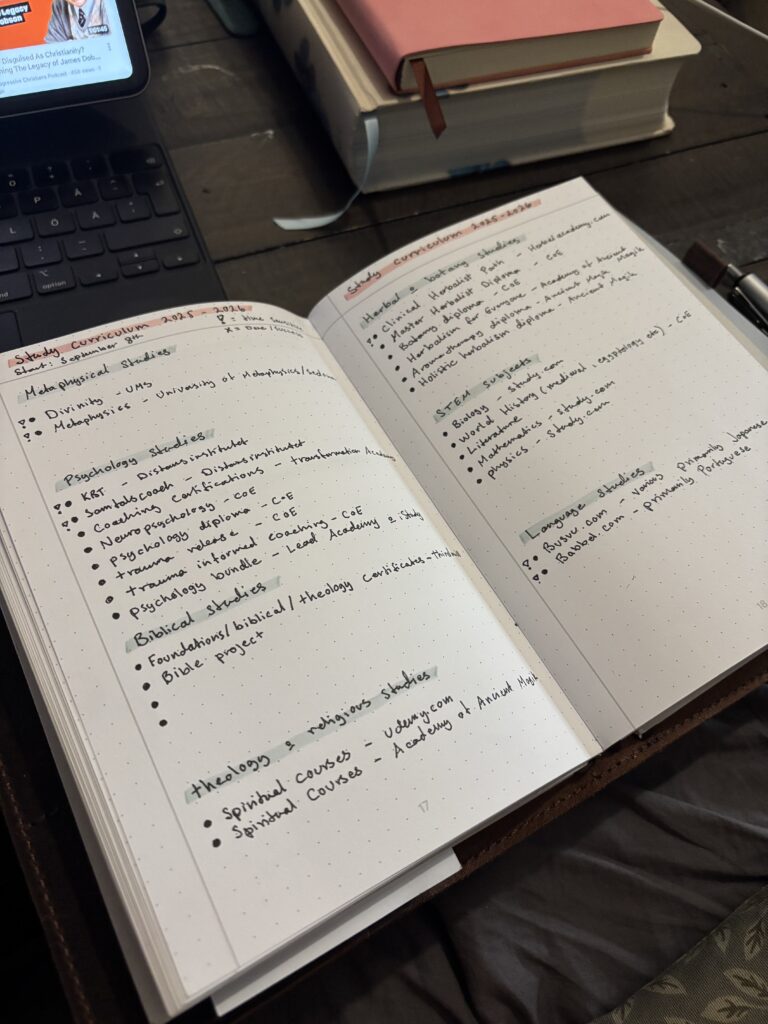 Legacy
Dobson
Disguised As Christianity?
The Legacy of James Dob...
Christians Podcast
option
Study Curriculum 2025 - 2026
Start: September 8th
Metaphysical Studies
Divinity - UMS
Metaphysics - University of Metaphysics/
Psychology Studies
KBT - Distansinstitutet
Samtalscoach - Distansinstitutet
Coaching Certifications - transformation Academy
Neuropsychology - CoE
psychology diploma - CoE
trauma release - CoE
trauma informed coaching - CoE
psychology bundle - Lead Academy & iStudy
Biblical Studies
Foundations/biblical/theology certificates -
Bible project
theology & religious studies
Spiritual courses - udemy.com
Spiritual Courses - Academy of Ancient Magik
17
Study Curriculum 2025-2026
Herbal & botany studies
Clinical Herbalist Path - Herbalacademy.com
Master Herbalist Diploma - CoE
Botany diploma - CoE
Herbalism for Everyone - Academy of Ancient Magik
Aromatherapy diploma - Ancient Magik
Holistic herbalism diploma - Ancient Magik
STEM subjects
Biology - study.com
World History (medieval, egyptology etc) - CoE
Literature
Mathematics - study.com
physics - study.com
Language Studies
Busuu.com - various primarily Japanese
Babbel.com - primarily Portuguese
18